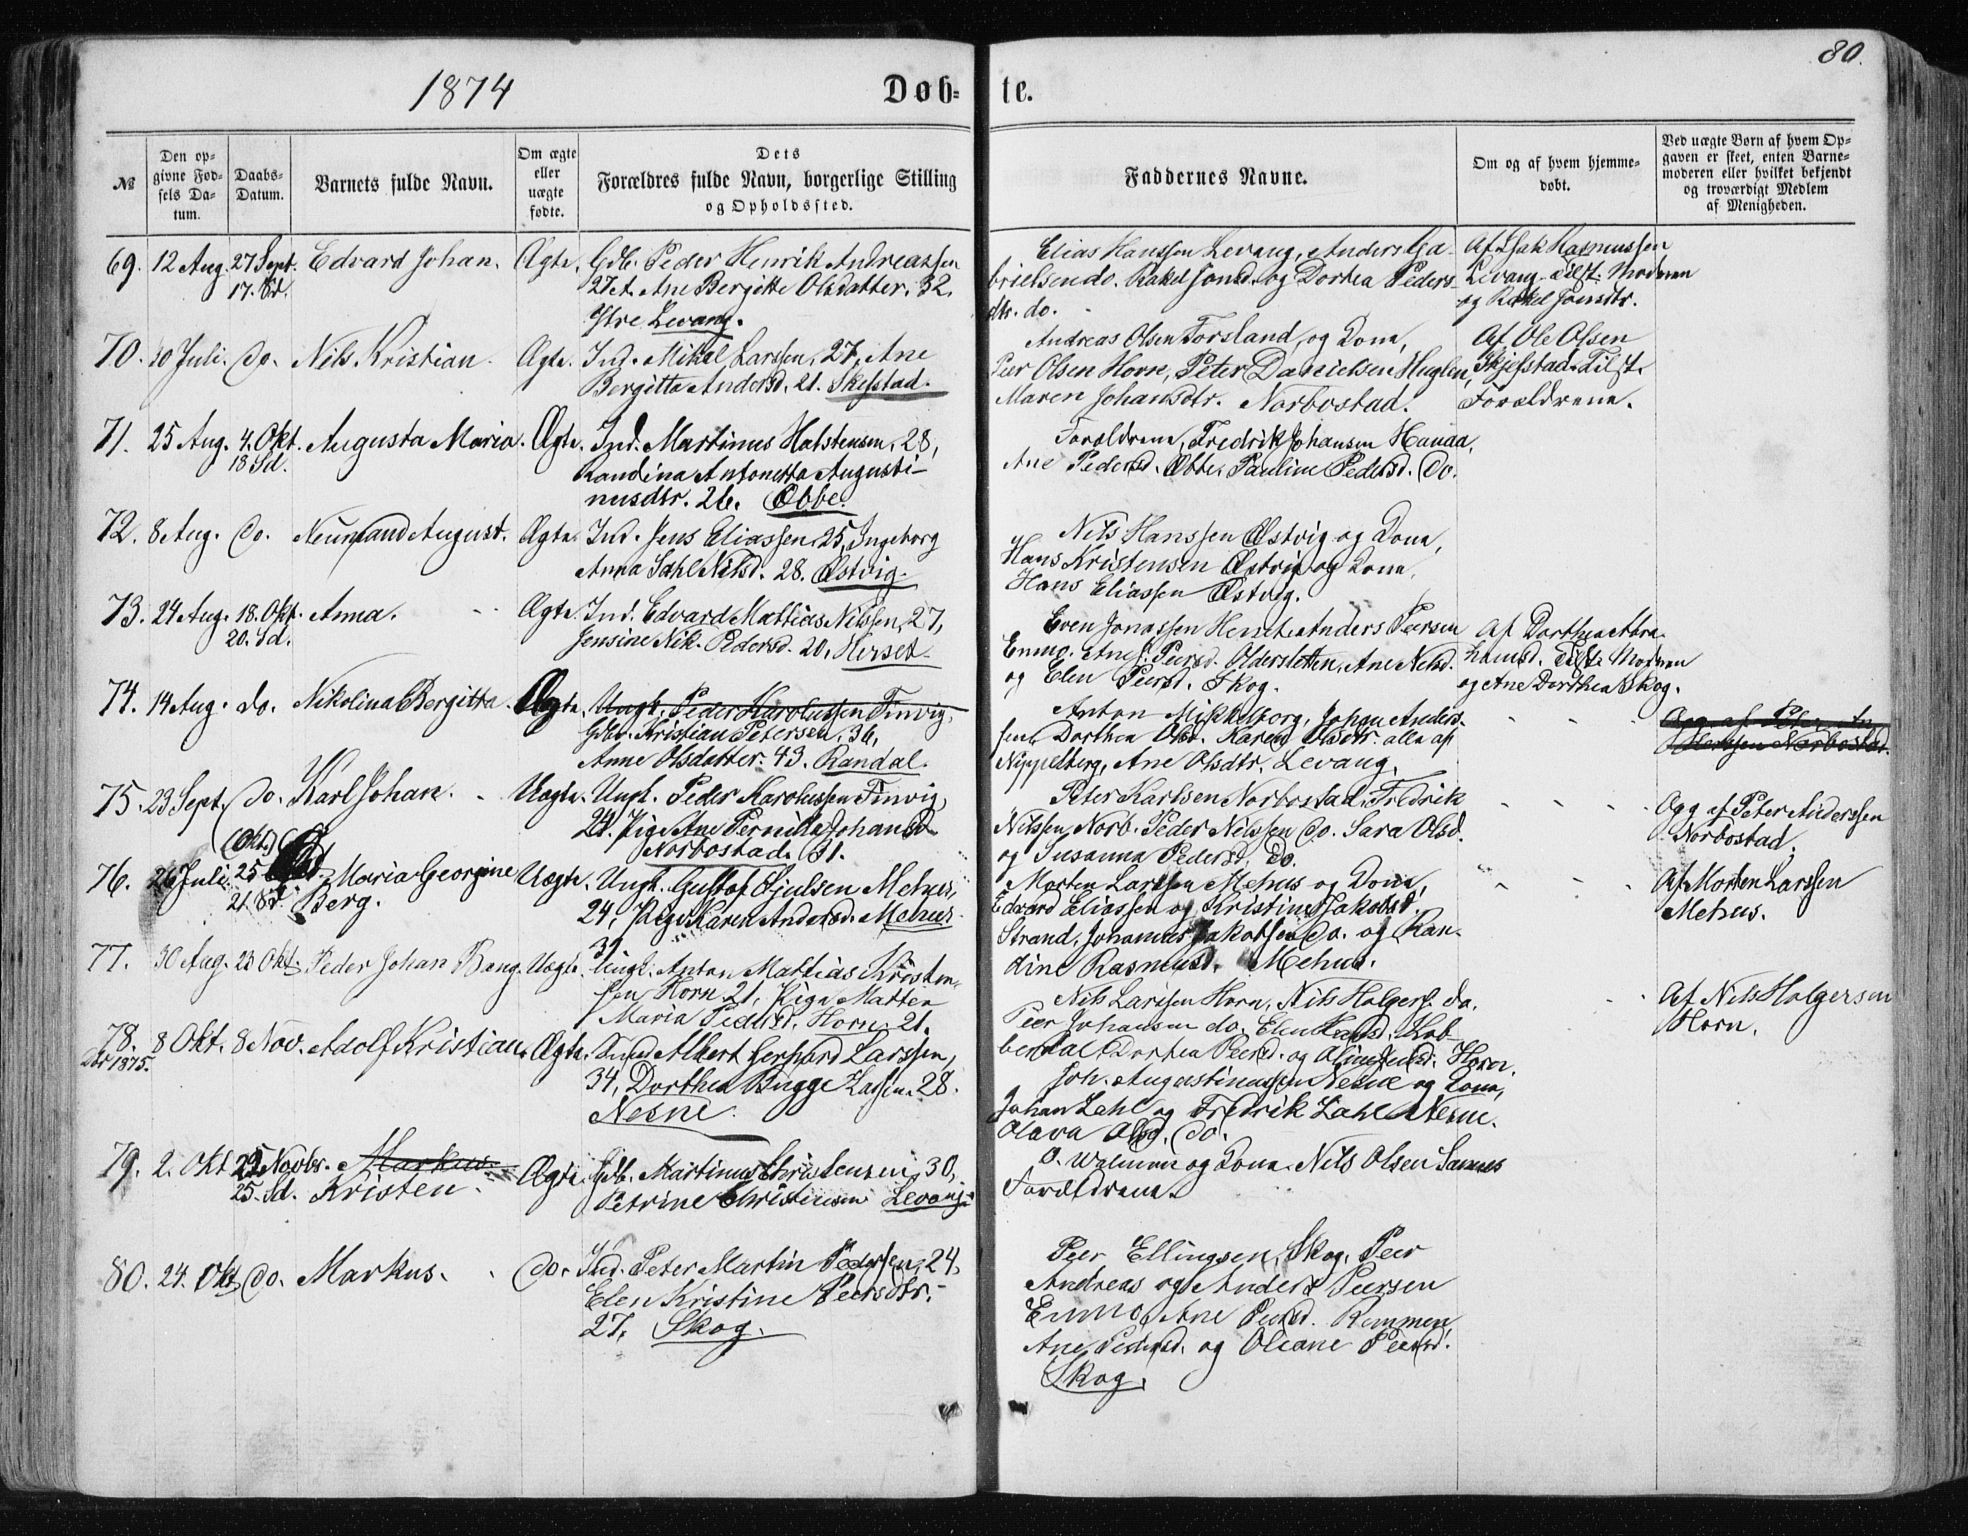 80.
1874
Døb-
te.
№
Den op-
givne Fød-
sels Da-
tum.
Daabs-
Datum.
Barnets fulde Navn.
Om ægte
eller
uægte
fødte.
Dets
Forældres fulde Navn, borgerlige Stilling
og Opholdssted.
Faddernes Navne.
Om og af hvem hjemme-
døbt.
Ved uægte Børn af hvem Op-
gaven er skeet, enten Barne-
moderen eller hvilket bekjendt
og troværdigt Medlem
af Menigheden.
69. 12 Aug. 27 Sept. Edvard Johan. Ægte. Gdb. Peder Henrik Andreassen
17. Sd. 27 et. Ane Bergitte Olsdatter. 32.
Ytre Levang.
Elias Hanssen Levang, Anders Ga-
brielsen do. Rakel Jonsd. og Dorthea Peders-
dtr. do.
Af Isak Rasmussen
Levang. Tilst: Moderen
og Rakel Jonsdtr.
70. 30 Juli. do. Nils Kristian. Ægte. Ind. Mikal Larssen, 27, Ane
Bergitta Andersd. 21. Skjestad.
Andreas Olsen Forsland, og Kona,
Peer Olsen Hovre, Peter Danielsen Huglen,
Maren Johansdtr. Norbostad.
Af Ole Olsen
Skjefstad. Tilst.
Forældrene.
71. 25 Aug. 4. Okt. Augusta Maria. Ægte. Ind. Martinus Halstensen, 28,
18 Sd. Randina Antonetta Augusti-
nusdtr. 26. Æbbe.
Forældrene, Fredrik Johansen
Ane Pedersd. Pauline Pedersd. do.
72. 8 Aug. do. Neumand August. Ægte. Ind. Jens Eliassen, 25, Ingeborg
Anna Nilsd. 28. Østvig.
Nils Hanssen Østvig og Kona,
Hans Kristensen Østvig og Kona,
Hans Eliassen Østvig.
73. 24 Aug. 18. Okt. Anna. Ægte. Ind. Edvard Mattias Nilssen, 27,
20. Sd. Jensine Nik. Pedersd. 20, Herset.
Even Jonassen Anders Peersen
Emmo. Peersd. Oldersletten, Ane Nilsd.
og Elen Peersd. Skog.
Af Dorthea Abra-
hamsd. Tilst. Moderen
og Ane Dorthea Skog.
74. 14 Aug. do. Nikolina Bergitta. Ægte. Ungk. Peder Karolussen Finvig,
Gdbr. Kristian Petersen, 36,
Anne Olsdatter. 43. Randal.
Anton Mikkelborg, Johan Anders-
sen, Dorthea Olsd. Karen Olsdtr. alle af
Nippelberg, Ane Olsdtr. Levang.
Opg. af Peter An-
derssen Norbostad.
75. 23 Sept. do. Karl Johan. Uægte. Ungk. Peder Karolussen Finvig,
Pige Ane Pernilla Johansd.
Norbostad. 31.
Peter Karlsen Norbostad, Fredrik
Nilssen Norb. Peder Nilssen do. Sara Olsd.
og Susanna Pedersd. do.
Opg af Peter Anderssen
Norbostad.
76. 26 Juli. 25 (Okt.) Maria Georgine Uægte. Ungk. Gustaf Mehus,
21. Sd. Berg. 24, Pige Karen Andersd. Mehus
31.
Morten Larssen Mehus og Kona,
Edvard Eliassen og Kristine Jakobsd.
Strand, Johannes Jakobsen do. og Ran-
dine Rasmusd. Mehus.
Af Morten Larssen
Mehus.
77. 30 Aug. 23 Okt. Peder Johan Bang. Uægte. Ungk. Anton Mattias Kristen-
sen Horn 21, Pige Marten
Maria Pedersd. Horn. 21.
Nils Larssen Horn, Nils Holgers. do.
Peer Johansen do. Elen
Dorthea Peersd. og Horn.
Af Nils Holgersen
Horn.
78. 8 Okt. 8 Nov. Adolf Kristian. Ægte. Albert Gerhard Larssen,
for 1875. 34, Dorthea Bugge Larssen. 28.
Nesne.
Joh. Augustinussen Nesne og Kona,
Johan Zahl og Fredrik Zahl Nesne.
Olava Olsd. do.
79. 2. Okt 29 Novbr. Markus Ægte. Gdb. Martinus Christensen, 30,
25. Sd. Kristen. Petrine Christensen Levang.
O. og Kona, Nils Olsen
Forældrene.
80. 24. Okt do. Markus. do. Ind. Peter Martin Pederssen, 24,
Elen Kristine Peersdtr.
27, Skog.
Peer Ellingsen, Skog, Peer
Andreas og Anders Peersen
Emmo, Ane Peersd. Remmen
Ane Pedersd. og Oleane Peersd.
Skog.